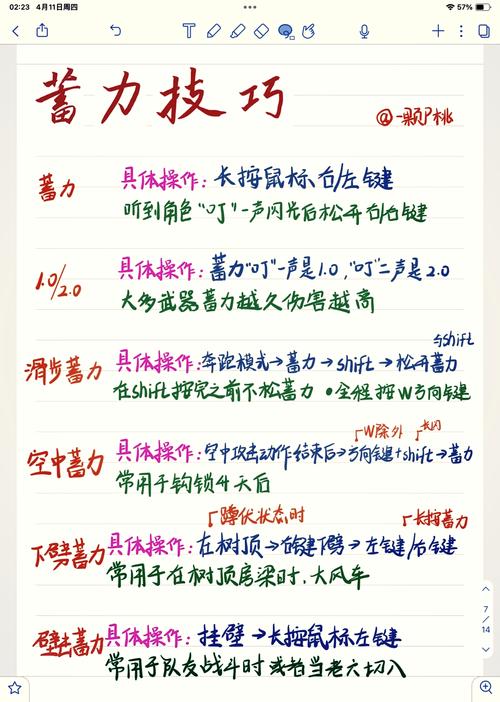 02:23 4月11日周四
57%
蓄力技巧
@一颗户桃
蓄力
具体操作：长按鼠标右/左键
听到角色“叮”一声闪光后松开右/左键
1.0/2.0
具体操作：蓄力“叮”一声是1.0，“叮”二声是2.0
大多武器蓄力越久伤害越高
与shift
滑步蓄力
具体操作：奔跑模式→蓄力→shift→松开蓄力
在shift按完之前不松蓄力 •全程按W方向键
W除外
长闪
空中蓄力
具体操作：空中攻击动作结束后→方向键+shift→蓄力
常用于钩锁升天后
蹲伏状态时
长按蓄力
下劈蓄力
具体操作：在树顶→右键下劈→左键/右键
常用于在树顶房梁时，大风车
壁击蓄力
具体操作：挂壁→长按鼠标左键
常用于队友战斗时 或者当老六切入
7
/
14